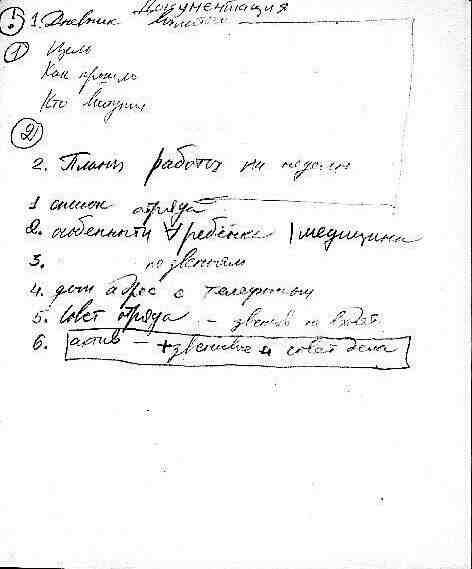 Документация
1. Дневник вожатого
1 Цель
Как прошло
Кто
2
2. Планы работы на неделю
1 список отряда
2. особенности ∀ ребёнка / медицина
3. по звеньям
4. дом адрес с телефоном
5. Совет отряда – звенья
6. актив – + звеньевые и совет дела